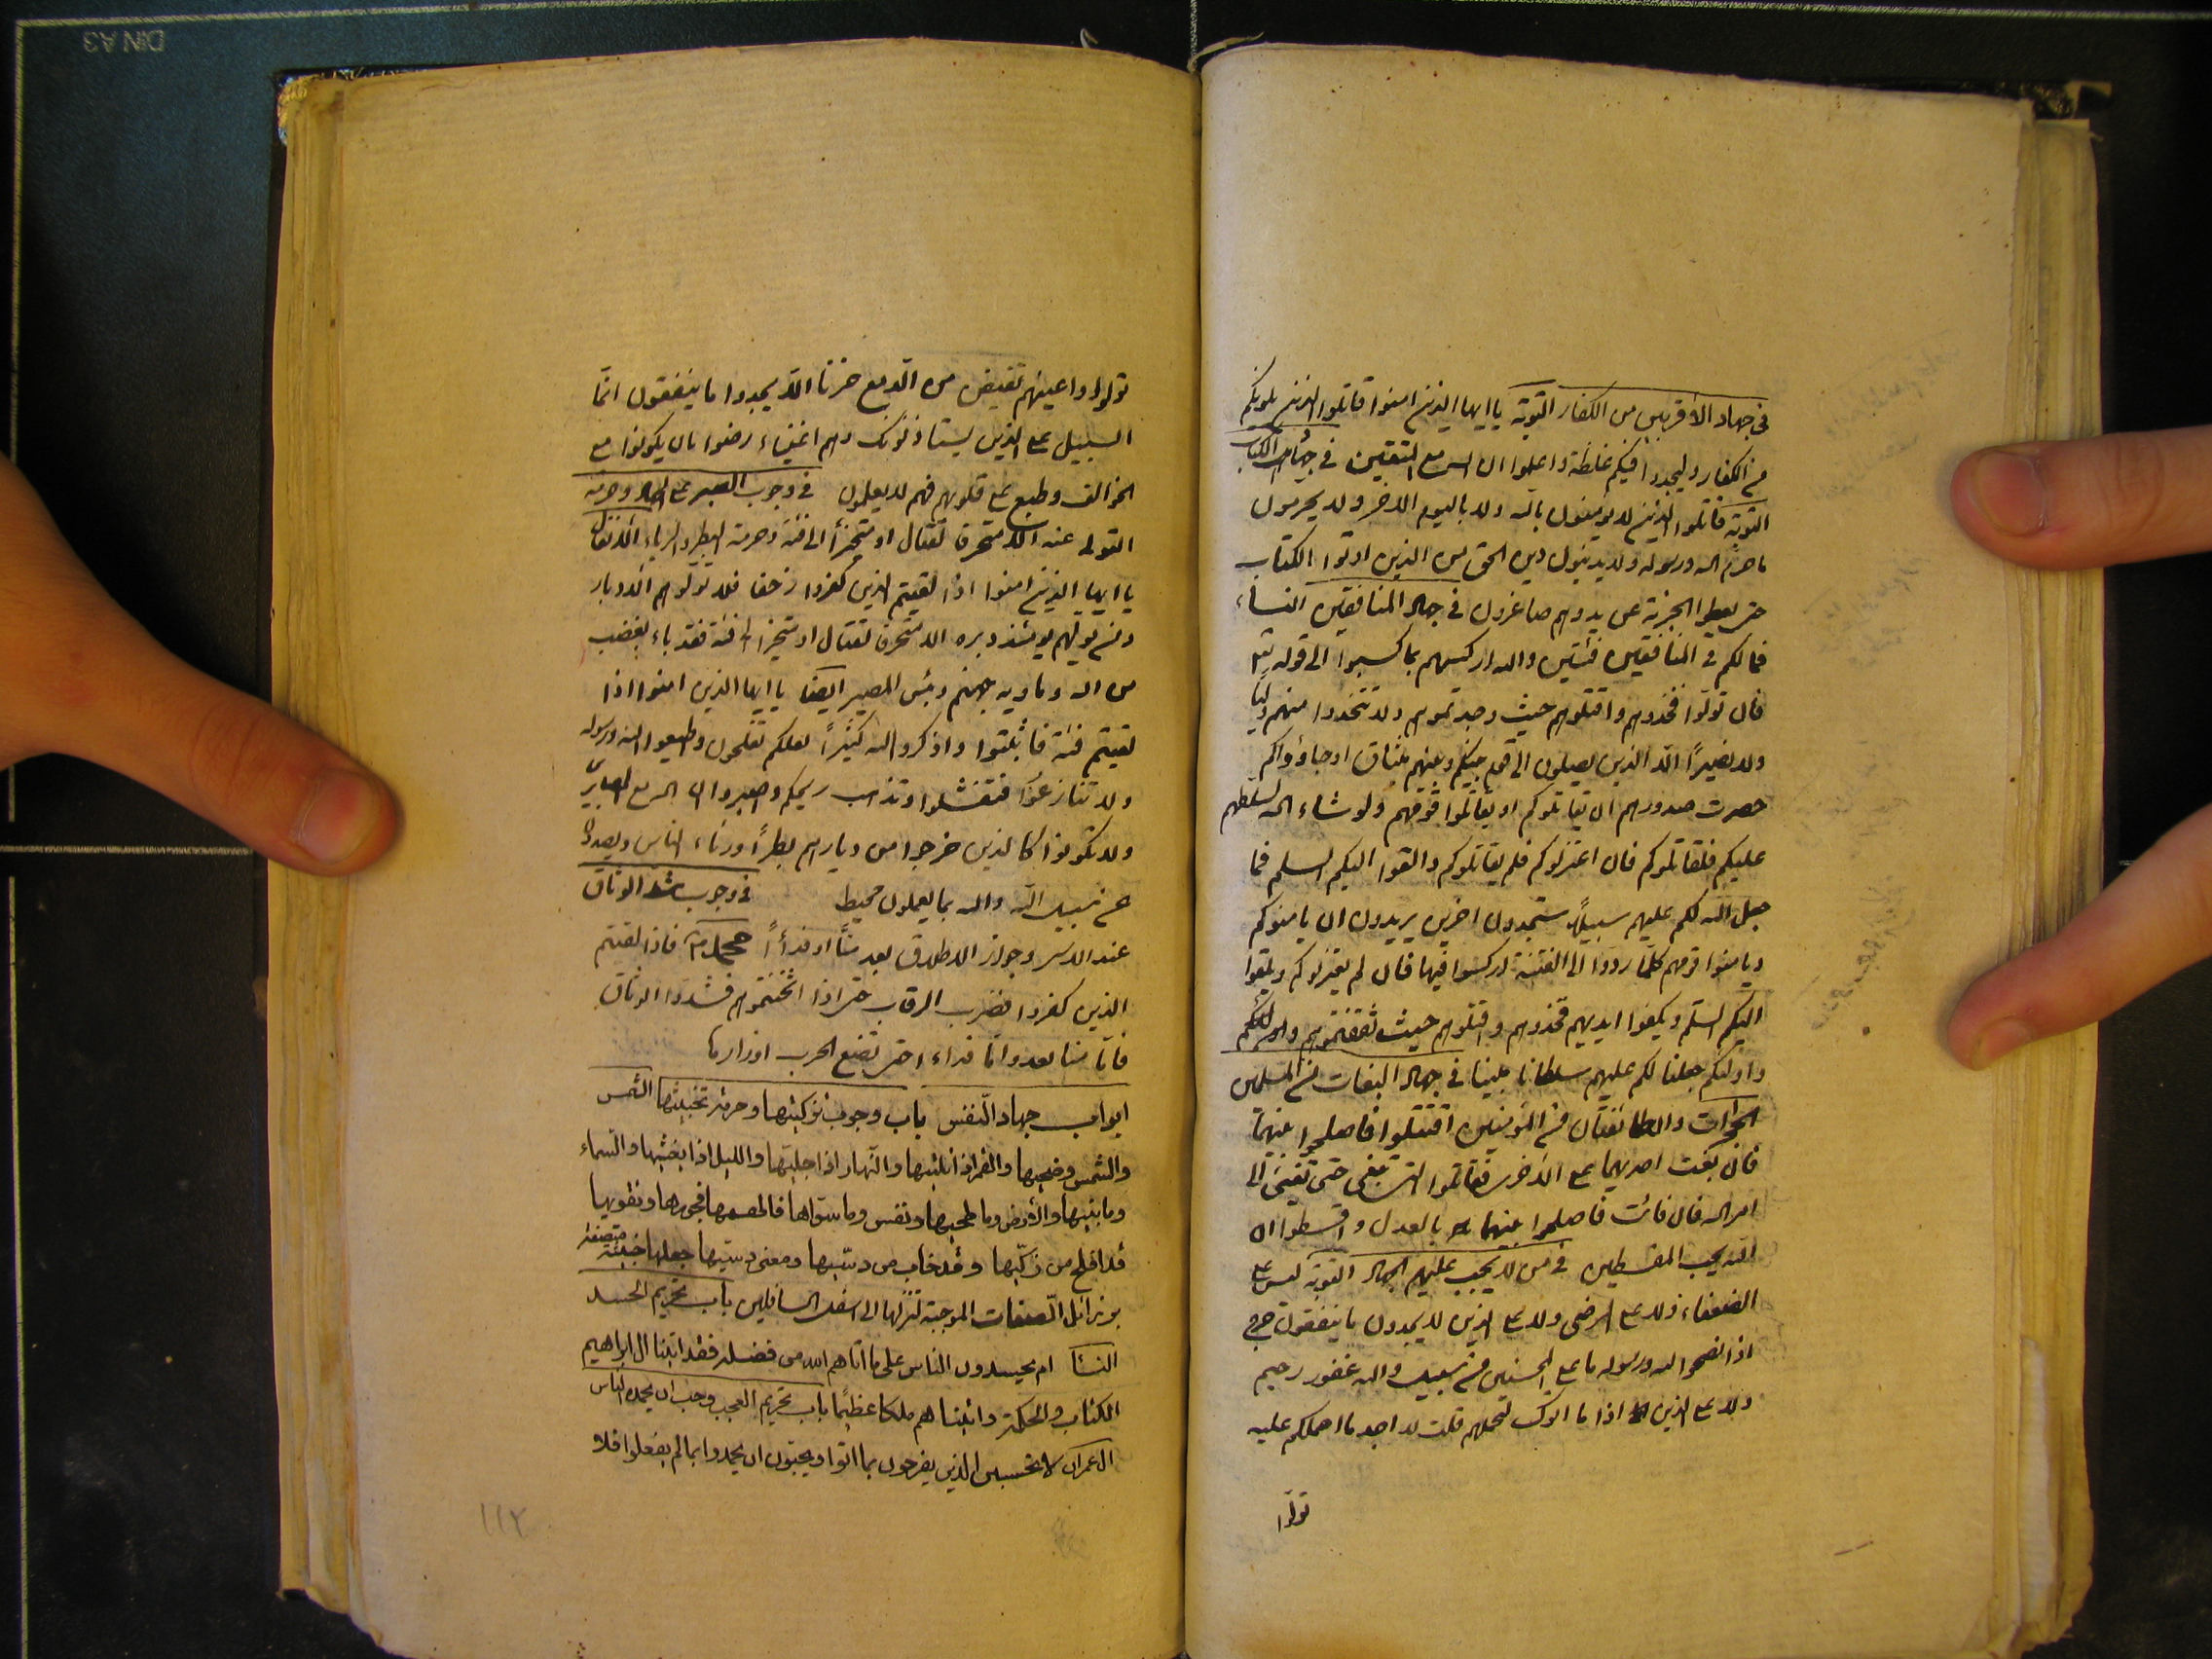 في جهاد الأقربين من الكفار التوبة يا ايها الذين امنوا قاتلوا الذين يلونكم
من الكفار وليجدوا فيكم غلظة واعلموا ان الله مع المتقين في جهاد اهل الكتاب
التوبة قاتلوا الذين لا يؤمنون بالله ولا باليوم الاخر ولا يحرمون
ما حرم الله ورسوله ولا يدينون دين الحق من الذين اوتوا الكتاب
حتى يعطوا الجزية عن يد وهم صاغرون في جهاد المنافقين النساء
فما لكم في المنافقين فئتين والله اركسهم بما كسبوا الى قوله تعالى
فان تولوا فخذوهم واقتلوهم حيث وجدتموهم ولا تتخذوا منهم وليا
ولا نصيراً الا الذين يصلون الى قوم بينكم وبينهم ميثاق او جاؤاكم
حصرت صدورهم ان يقاتلوكم او يقاتلوا قومهم ولو شاء الله لسلطهم
عليكم فلقاتلوكم فان اعتزلوكم فلم يقاتلوكم والقوا اليكم السلم فما
جعل الله لكم عليهم سبيلاً ستجدون اخرين يريدون ان يامنوكم
ويامنوا قومهم كلما ردوا الى الفتنة اركسوا فيها فان لم يعتزلوكم ويلقوا
اليكم السلم ويكفوا ايديهم فخذوهم واقتلوهم حيث ثقفتموهم واولئكم
واولئكم جعلنا لكم عليهم سلطانا مبينا في جهاد البغات من المسلمين
الحجرات وان طائفتان من المؤمنين اقتتلوا فاصلحوا بينهما
فان بغت احديهما على الاخرى فقاتلوا التي تبغي حتى تفيئ الى
امر الله فان فائت فاصلحوا بينهما بالعدل واقسطوا ان
الله يحب المقسطين في من لا يجب عليهم الجهاد التوبة ليس على
الضعفاء ولا على المرضى ولا على الذين لا يجدون ما ينفقون حرج
اذا نصحوا لله ورسوله ما على المحسنين من سبيل والله غفور رحيم
ولا على الذين اذا ما اتوك لتحملهم قلت لا اجد ما احملكم عليه
تولّوا
تولوا واعينهم تفيض من الدمع حزنا الا يجدوا ما ينفقون انما
السبيل على الذين يستاذنونك وهم اغنياء رضوا بان يكونوا مع
الخوالف وطبع على قلوبهم فهم لا يعلمون في وجوب الصبر على الجهاد وحرمة
التولى عنه الا متحرفا لقتال او متحيزاً الى فئة وحرمة البطر والرياء الانفال
يا ايها الذين امنوا اذا لقيتم الذين كفروا زحفا فلا تولوهم الادبار
ومن يولهم يومئذ دبره الا متحرفا لقتال او متحيزا الى فئة فقد باء بغضب
من الله وماويه جهنم وبئس المصير ايضا يا ايها الذين امنوا اذا
لقيتم فئة فاثبتوا واذكروا الله كثيراً لعلكم تفلحون واطيعوا الله ورسوله
ولا تنازعوا فتفشلوا وتذهب ريحكم واصبروا ان الله مع الصابرين
ولا تكونوا كالذين خرجوا من ديارهم بطراً ورئاء الناس ويصدون
عن سبيل الله والله بما يعملون محيط في وجوب شد الوثاق
عند الاسر وجواز الاطلاق بعد منّاً او فداءً محمد فاذا لقيتم
الذين كفروا فضرب الرقاب حتى اذا اثخنتموهم فشدوا الوثاق
فامّا منا بعد وامّا فداء حتى تضع الحرب اوزارها
ابواب جهاد النفس باب وجوب تزكيتها وحرمة تخبيثها الشمس
والشمس وضحيها والقمر اذا تليها والنهار اذا جليها والليل اذا يغشيها والسماء
وما بنيها والارض وما طحيها ونفس وما سواها فالهمها فجورها وتقويها
قد افلح من زكّيها وقد خاب من دسّيها ومعنى دسّيها جعلها خبيثة متصفة
برذائل الصفات الموجبة لتنزلها الى اسفل السافلين باب تحريم الحسد
النساء ام يحسدون الناس على ما اتاهم الله من فضله فقد اتينا ال ابراهيم
الكتاب والحكمة واتيناهم ملكا عظيماً باب تحريم العجب وحب ان يحمده الناس
ال عمران لا تحسبن الذين يفرحون بما اتوا ويحبون ان يحمدوا بما لم يفعلوا فلا
١١٢
DIN A3